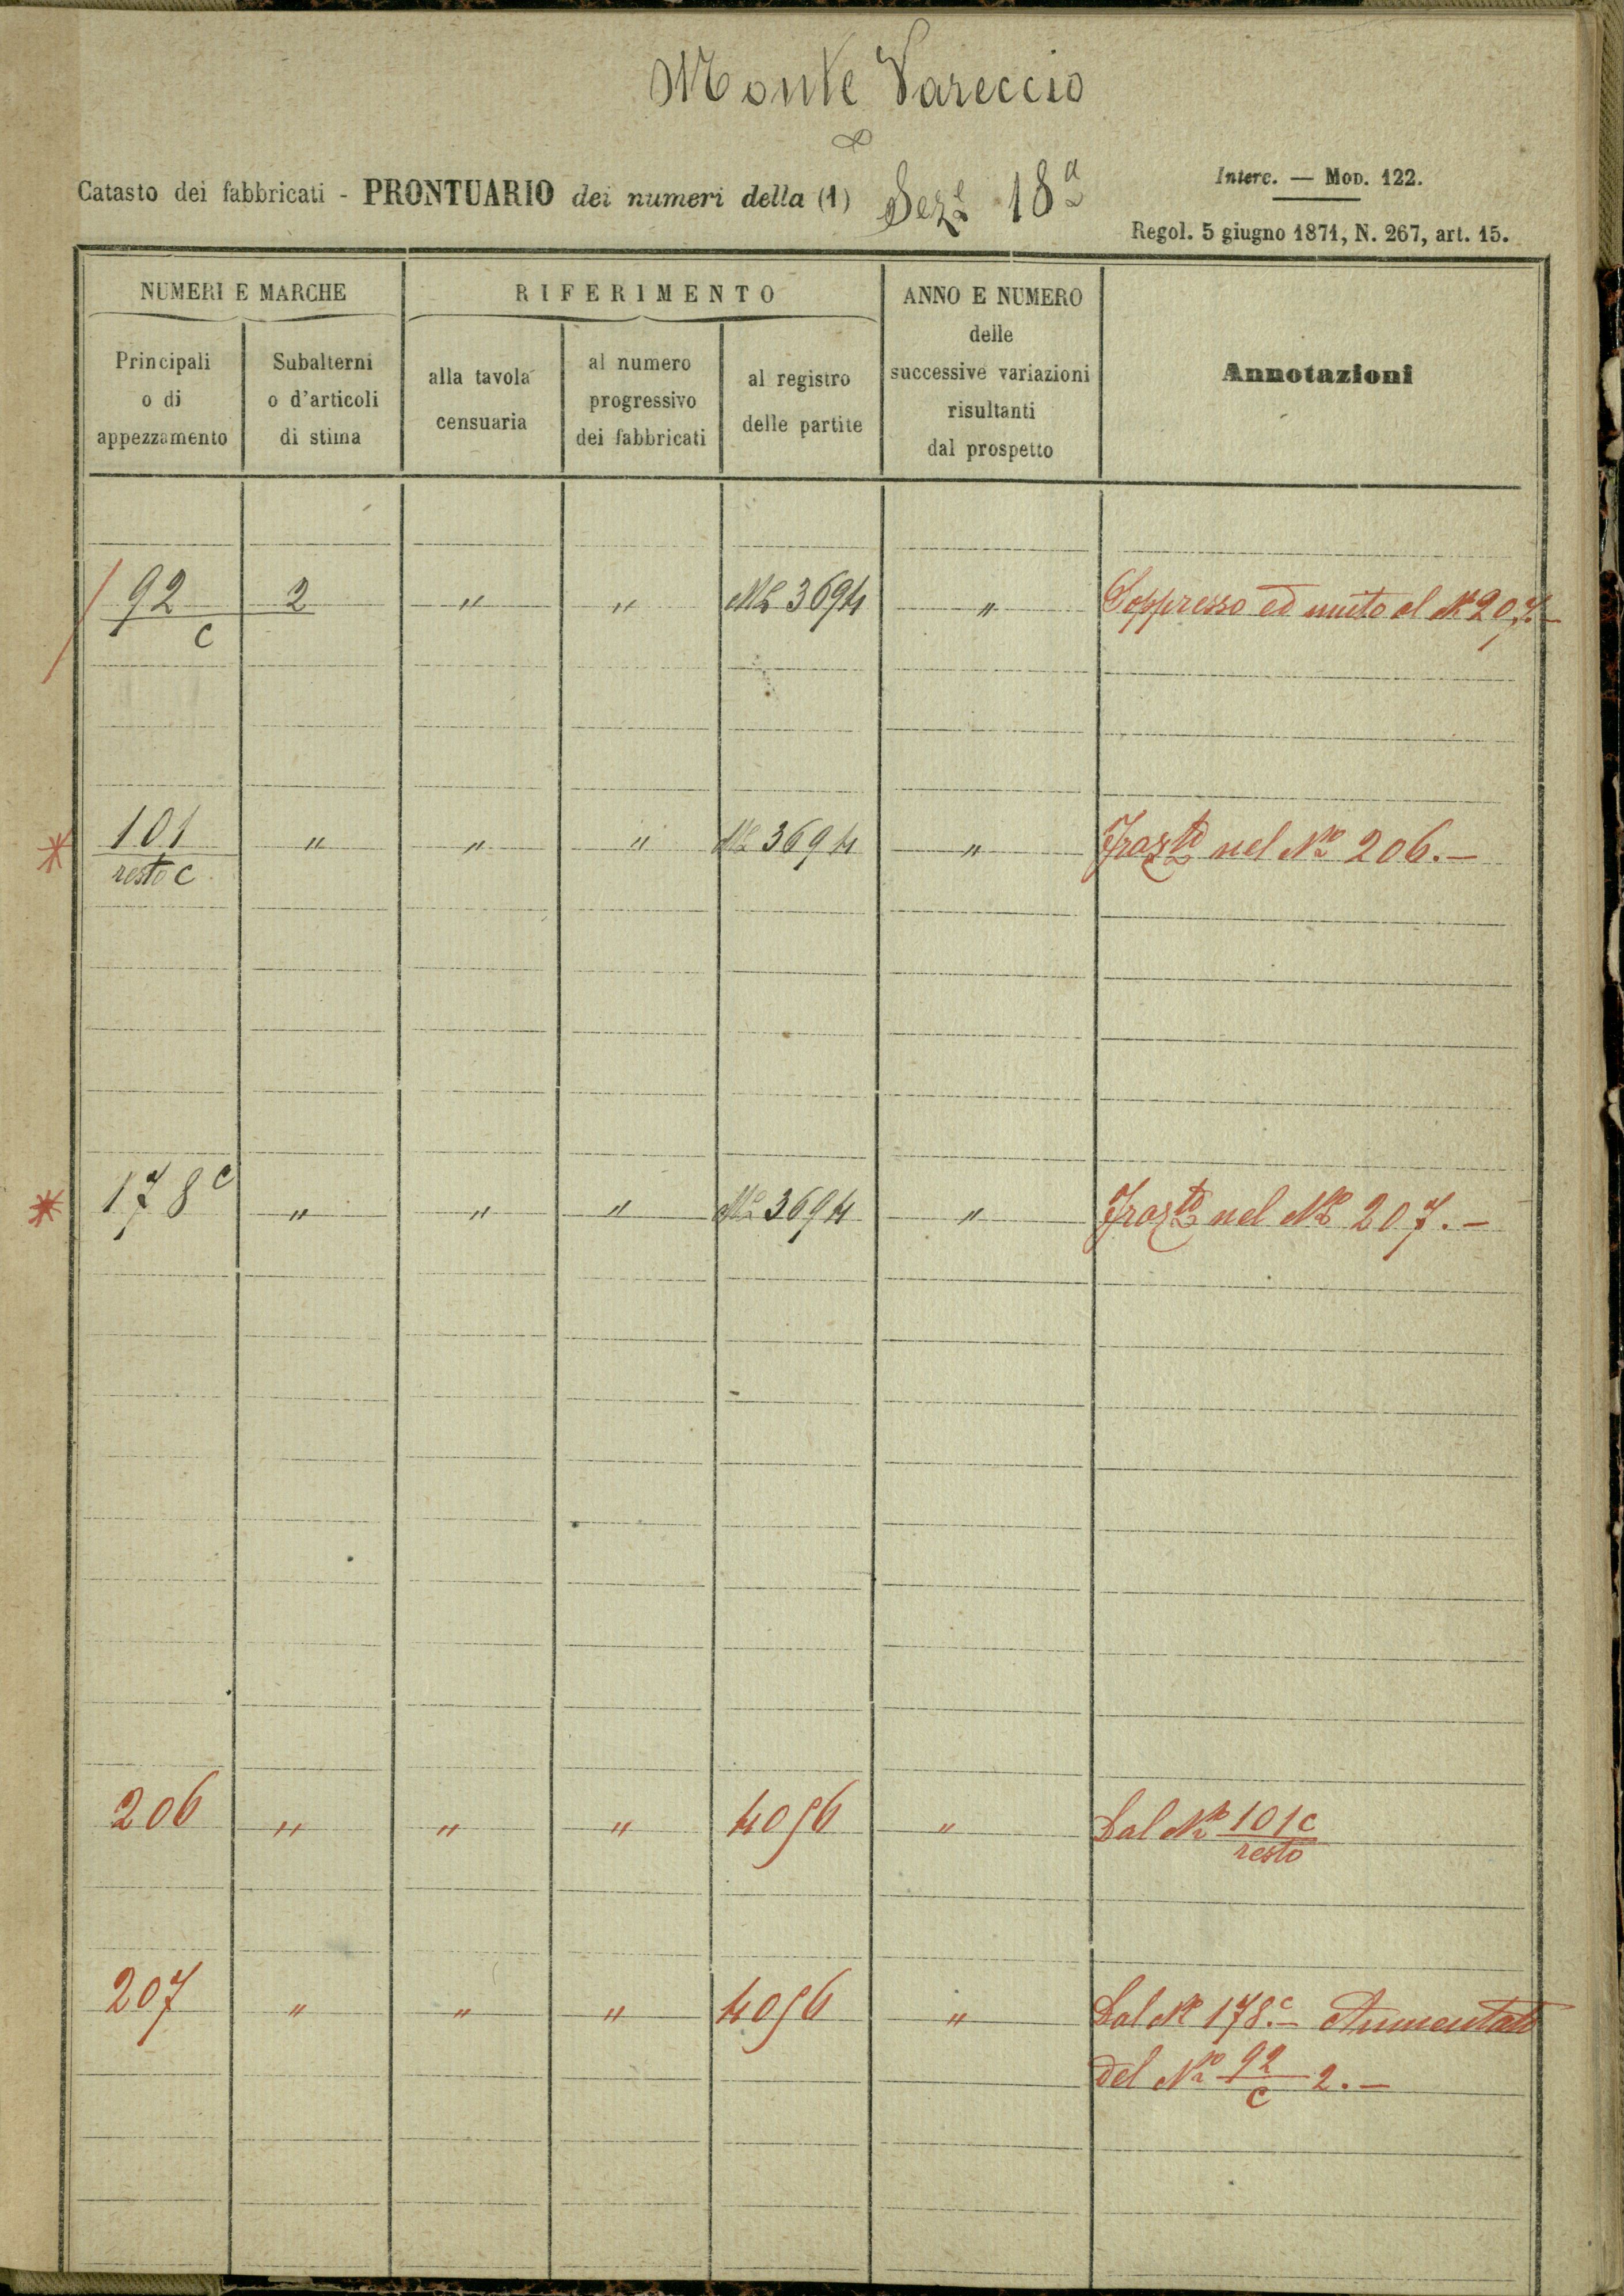 Monte Vareccio
Interc. — Mod. 122.
Catasto dei fabbricati - PRONTUARIO dei numeri della (1) Sez.e 18a
Regol. 5 giugno 1871, N. 267, art. 15.
NUMERI E MARCHE
RIFERIMENTO
ANNO E NUMERO
delle
successive variazioni
risultanti
dal prospetto
Annotazioni
Principali
o di
appezzamento
Subalterni
o d'articoli
di stima
alla tavola
censuaria
al numero
progressivo
dei fabbricati
al registro
delle partite
92 2 " " No 3694 " Soppresso ed unito al No 207.-
c
101 " " " No 3694 " nel No 206.-
resto c
178c " " " No 3694 " nel No 207.-
206 " " " 4096 " Dal No 101c
resto
207 " " " 4096 " Dal No 178.c- Aumentato
del No 92 2.-
c